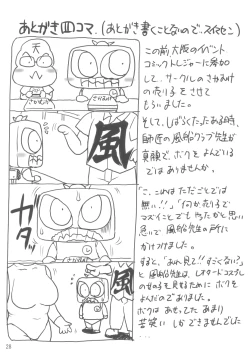 あとがき四コマ.(あとがき書くことないので.スイセン)
天
さかえ
さかなかめ
この前大阪のイベント
コミックトレジャーに参加
して.サークルのさかなかめ
の売り子をさせて
もらいました。
そして、しばらくたったある時、
師匠の風船クラブ先生が
真顔で、ボクをよんでいる
ではありませんか。
風
ガタッ
「こ、これはただごとでは
無い!!」「何か売り子で
マズイことでもやったかと思い
急いで風船先生の所に
かけつけました。
すると、「あれ見て!!すごくない?」
と風船先生は、レオタードコスプレ
の女の子を見するためにボクを
よんだのでありました。
ボクはあせってたあまり
苦笑いしかできませんでした…
風
28